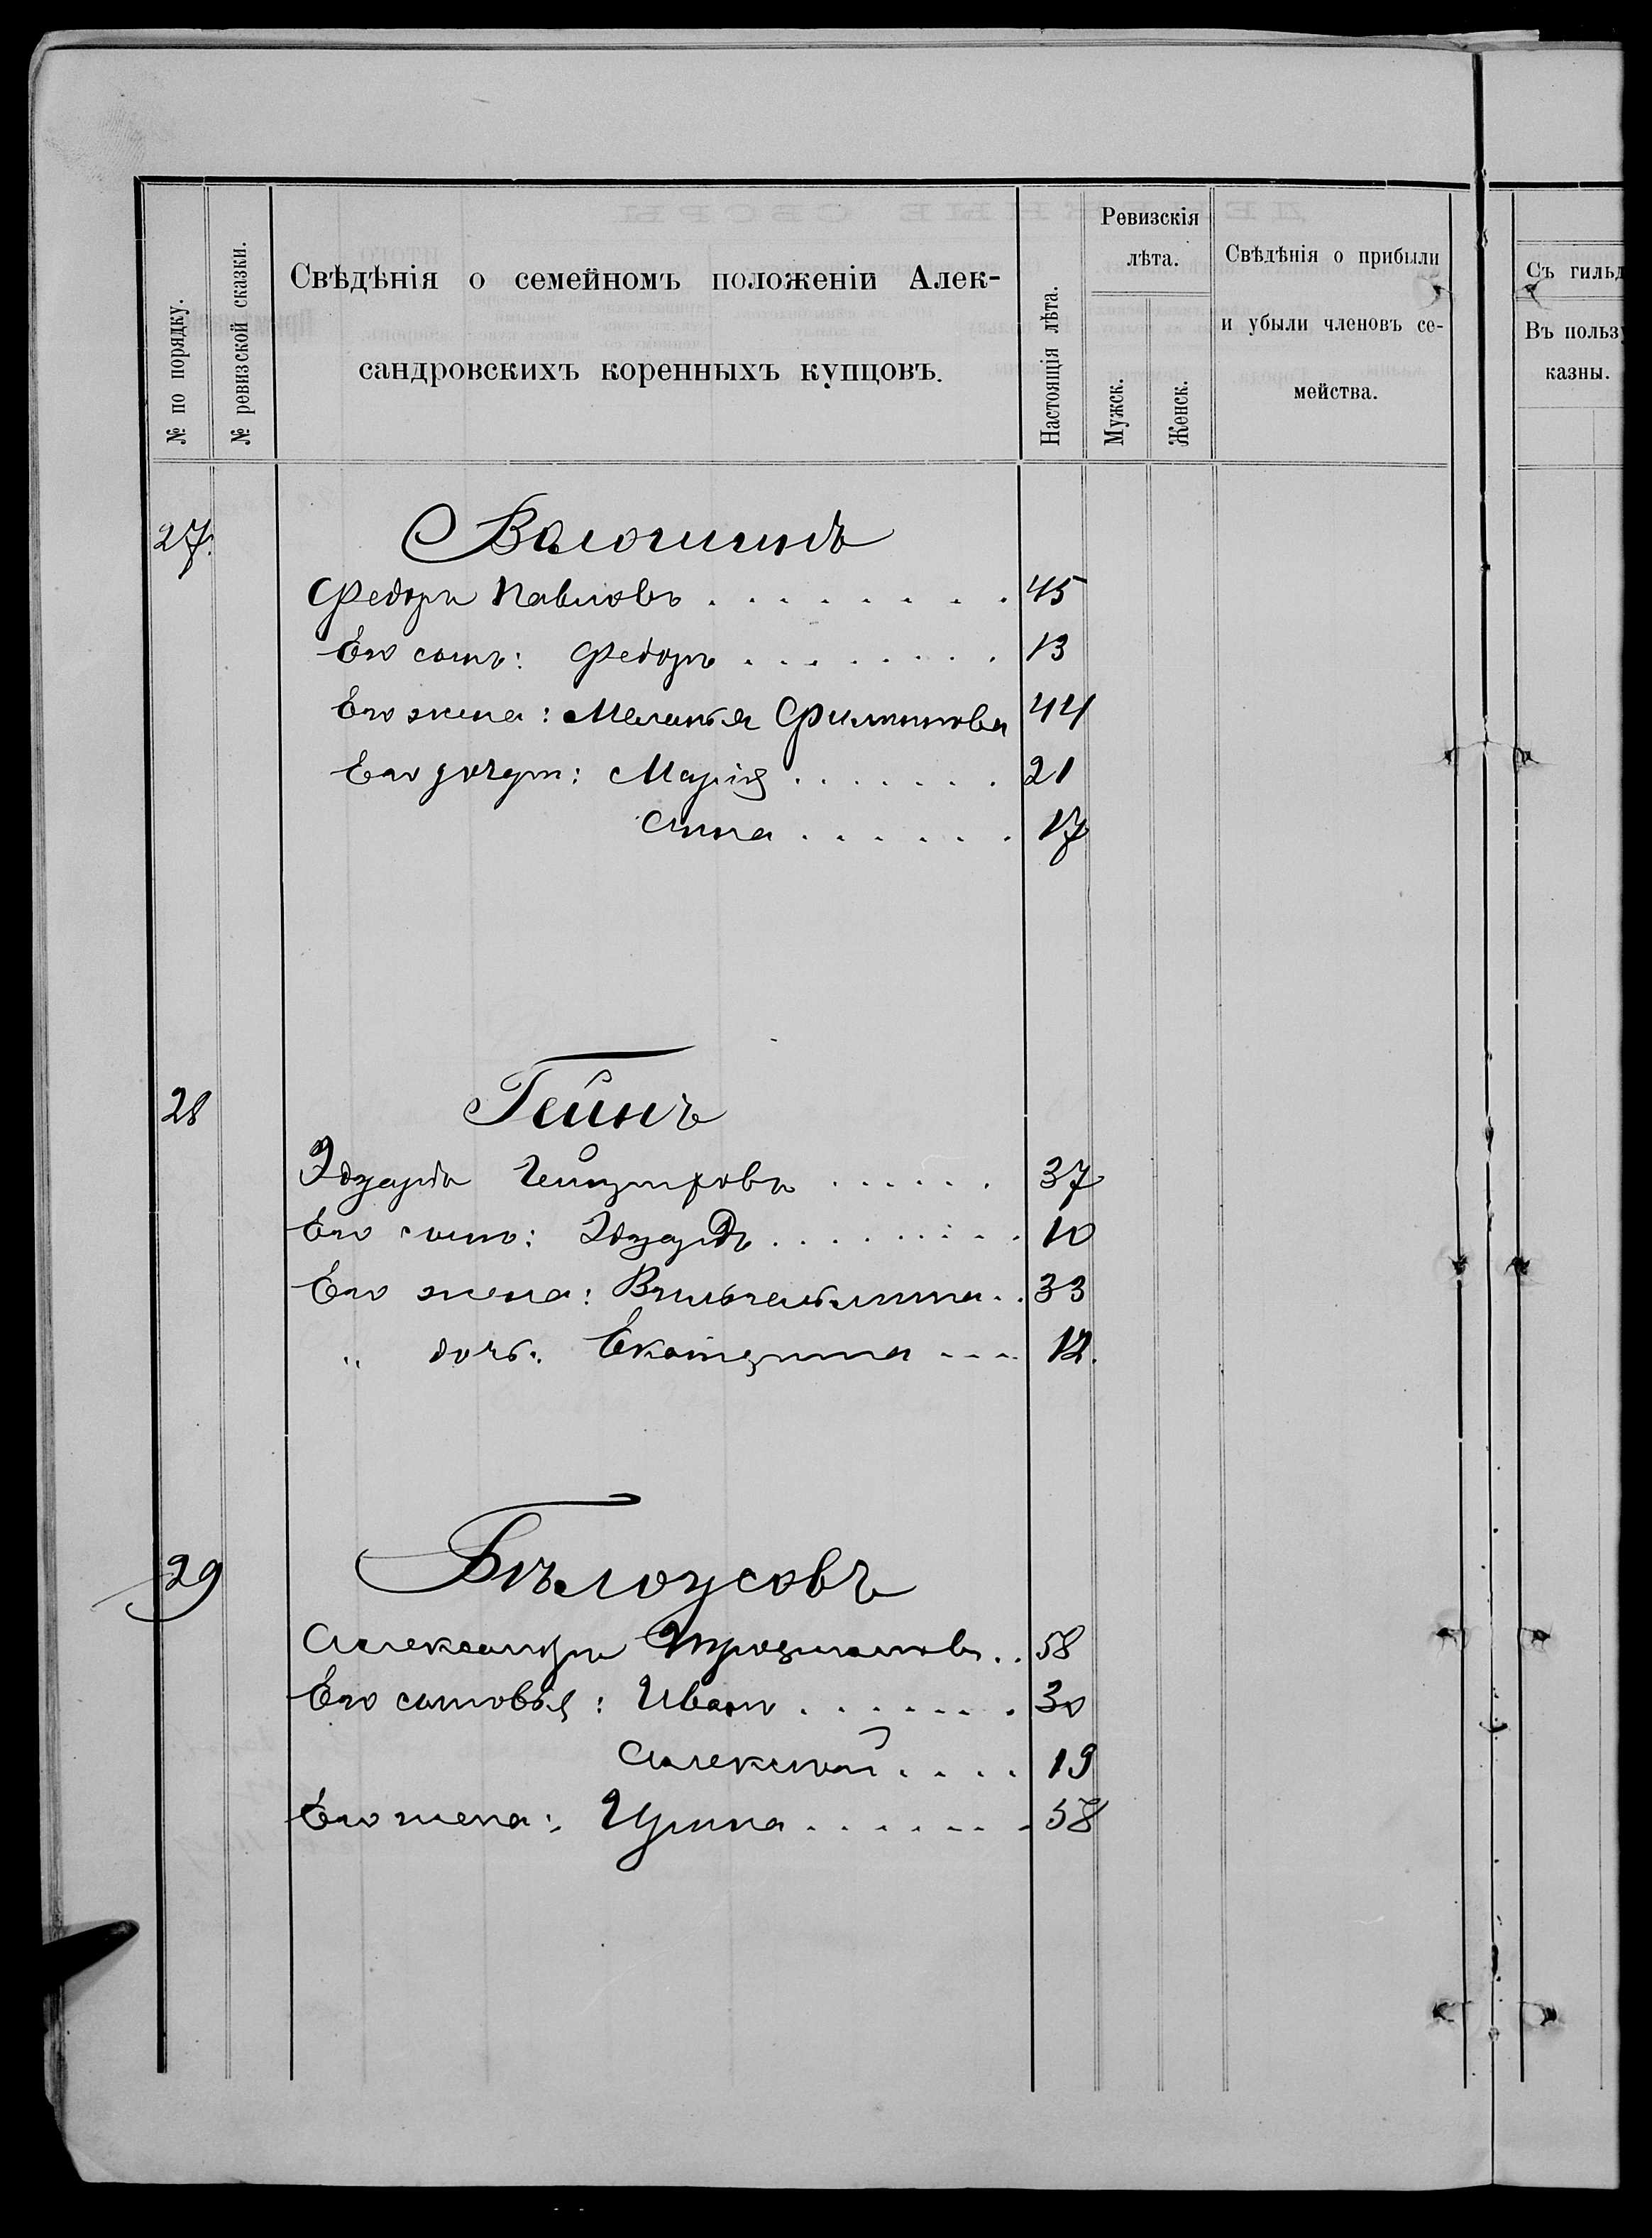 № по порядку.
№ ревизской сказки.
Свѣдѣнія о семейномъ положеніи Алек-
сандровскихъ коренныхъ купцовъ.
Настоящія лѣта.
Ревизскія
лѣта.
Мужск.
Женск.
Свѣдѣнія о прибыли
и убыли членовъ се-
мейства.
Съ гильд
Въ польз
казны.
27.
Федоръ Павловъ . . . . . . . . . 45
Его сынъ: Федоръ . . . . . . . . 13
Его жена: Меланья Филиппова 44
Его дочери: Марія . . . . . . . 21
Анна . . . . . . 17
28 Гейнъ
Эдуардъ . . . . . . 37
Его сынъ: Эдуардъ . . . . . . . . 10
Его жена: Вильгельмина . . 33
" дочь: Екатерина - - - 12.
29 Бѣлоусовъ
Александръ . . 58
Его сыновья: Иванъ . . . . . . . 30
Алексѣй . . . . 19
Его жена: Ирина . . . . . . . 58